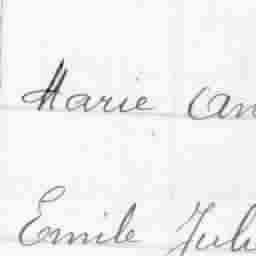 Marie An
Emile Jul